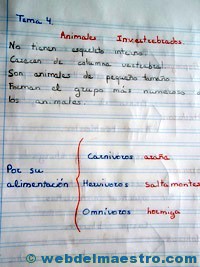 Tema 4.
Animales Invertebrados.
No tienen esqueleto interno.
Carecen de columna vertebral
Son animales de pequeño tamaño.
Forman el grupo más numeroso de
los animales.
Carnívoros araña
Por su
alimentación
Hervívoros saltamontes
Omnívoros hormiga
© webdelmaestro.com